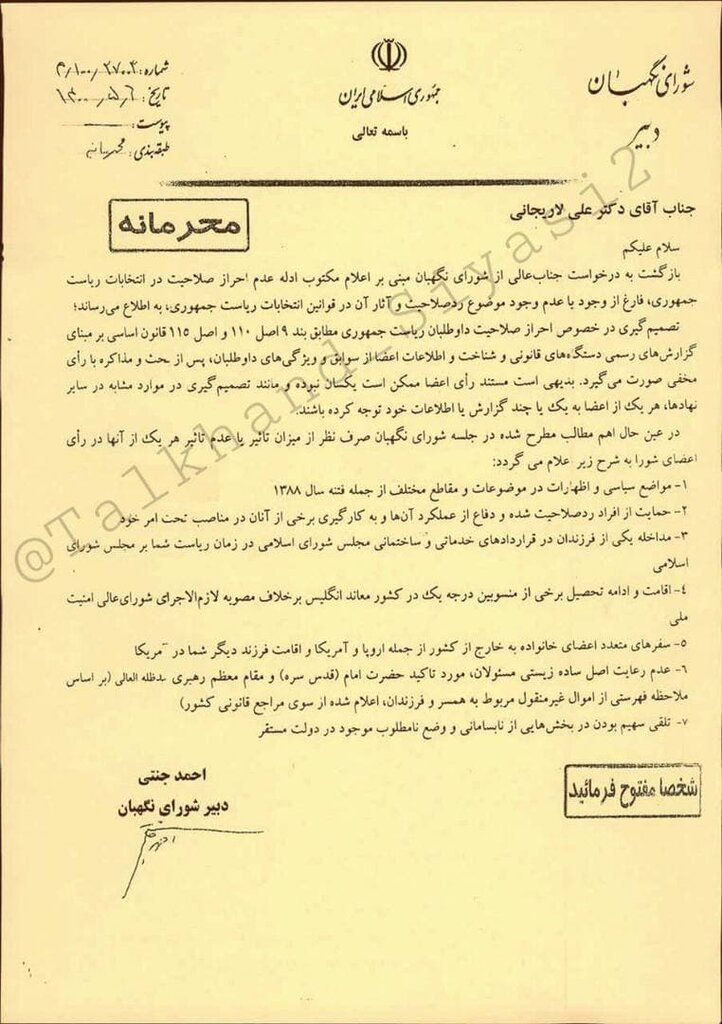 شورای نگهبان
دبیر
جمهوری اسلامی ایران
باسمه تعالی
شماره:
تاریخ:
پیوست:
طبقه‌بندی: محرمانه
محرمانه
جناب آقای دکتر علی لاریجانی
سلام علیکم
بازگشت به درخواست جناب‌عالی از شورای نگهبان مبنی بر اعلام مکتوب ادله عدم احراز صلاحیت در انتخابات ریاست
جمهوری، فارغ از وجود یا عدم وجود موضوع ردصلاحیت و آثار آن در قوانین انتخابات ریاست جمهوری، به اطلاع می‌رساند؛
تصمیم‌گیری در خصوص احراز صلاحیت داوطلبان ریاست جمهوری مطابق بند ۹ اصل ۱۱۰ و اصل ۱۱۵ قانون اساسی بر مبنای
گزارش‌های رسمی دستگاه‌های قانونی و شناخت و اطلاعات اعضا از سوابق و ویژگی‌های داوطلبان، پس از بحث و مذاکره با رأی
مخفی صورت می‌گیرد. بدیهی است مستند رأی اعضا ممکن است یکسان نبوده و مانند تصمیم‌گیری در موارد مشابه در سایر
نهادها، هر یک از اعضا به یک یا چند گزارش یا اطلاعات خود توجه کرده باشند.
در عین حال اهم مطالب مطرح شده در جلسه شورای نگهبان صرف نظر از میزان تأثیر یا عدم تاثیر هر یک از آنها در رأی
اعضای شورا به شرح زیر اعلام می گردد:
۱- مواضع سیاسی و اظهارات در موضوعات و مقاطع مختلف از جمله فتنه سال ۱۳۸۸
۲- حمایت از افراد ردصلاحیت شده و دفاع از عملکرد آن‌ها و به کارگیری برخی از آنان در مناصب تحت امر خود
۳- مداخله یکی از فرزندان در قراردادهای خدماتی و ساختمانی مجلس شورای اسلامی در زمان ریاست شما بر مجلس شورای
اسلامی
۴- اقامت و ادامه تحصیل برخی از منسوبین درجه یک در کشور معاند انگلیس برخلاف مصوبه لازم‌الاجرای شورای‌عالی امنیت
ملی
۵- سفرهای متعدد اعضای خانواده به خارج از کشور از جمله اروپا و آمریکا و اقامت فرزند دیگر شما در آمریکا
۶- عدم رعایت اصل ساده زیستی مسئولان، مورد تاکید حضرت امام (قدس سره) و مقام معظم رهبری مدظله العالی (بر اساس
ملاحظه فهرستی از اموال غیرمنقول مربوط به همسر و فرزندان، اعلام شده از سوی مراجع قانونی کشور)
۷- تلقی سهیم بودن در بخش‌هایی از نابسامانی و وضع نامطلوب موجود در دولت مستقر
احمد جنتی
دبیر شورای نگهبان
شخصا مفتوح فرمائید
@Talkhand_Siyasi2